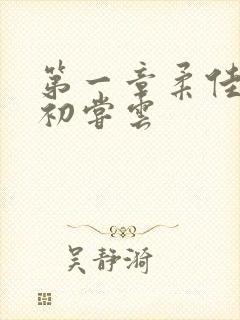 第一章柔佳
初尝雲
吴静漪